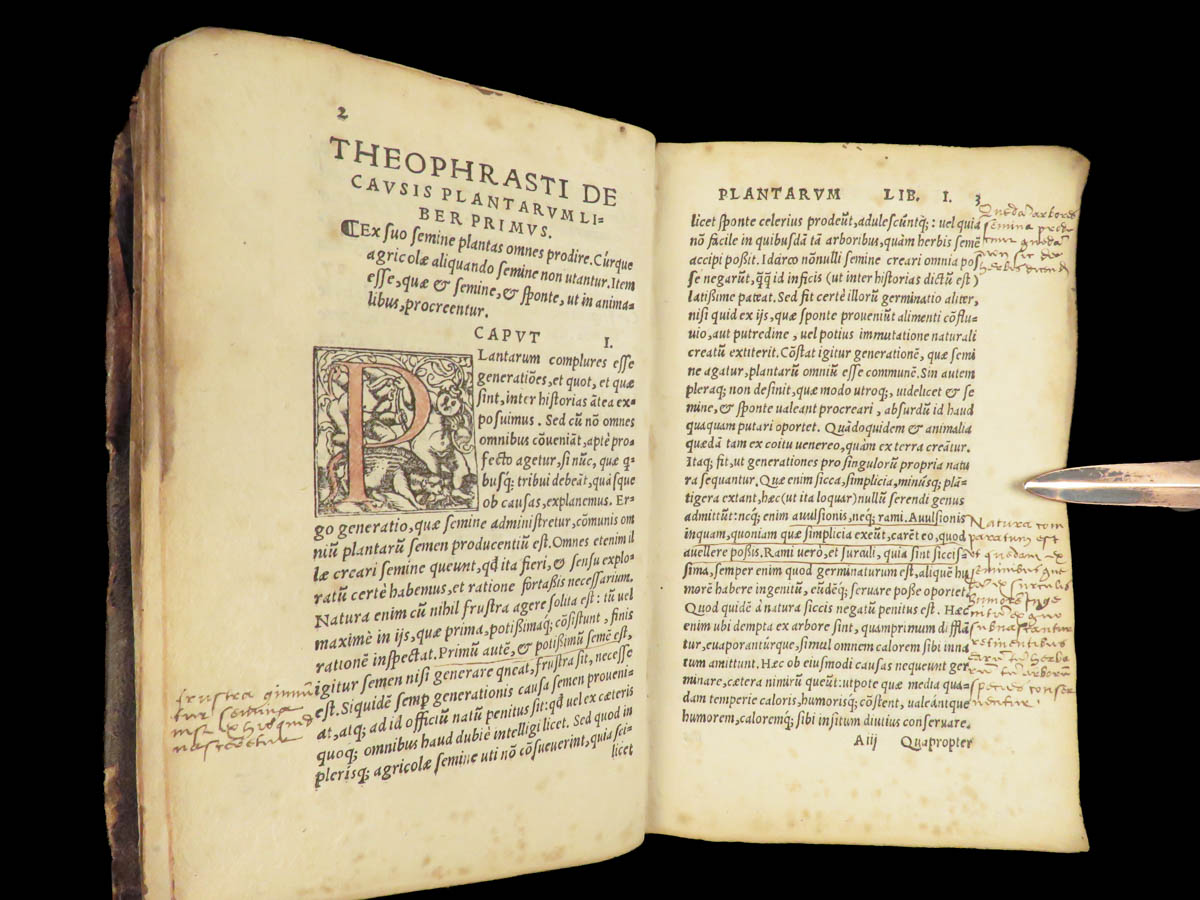 2
THEOPHRASTI DE
CAVSIS PLANTARVM LI-
BER PRIMVS.
¶Ex suo semine plantas omnes prodire. Cúrque
agricolæ aliquando semine non utantur. Item
esse, quæ & semine, & sponte, ut in anima-
libus, procreentur.
CAPVT I.
PLantarum complures esse
generatiões, et quot, et quæ
sint, inter historias ãtea ex-
posuimus. Sed cũ nõ omnes
omnibus cõueniãt, aptè pro-
fecto agetur, si nũc, quæ q-
busq; tribui debeãt, quásque
ob causas, explanemus. Er-
go generatio, quæ semine administretur, cõmunis om
niũ plantarũ semen producentiũ est. Omnes etenim il
læ creari semine queunt, qđ ita fieri, & sensu explo-
ratũ certè habemus, et ratione fortaßis necessarium.
Natura enim cũ nihil frustra agere solita est: tũ uel
maximè in ijs, quæ prima, potißimaq; cõsistunt, finis
rationẽ inspectat. Primũ autẽ, & potißimũ semẽ est,
igitur semen nisi generare qneat, frustra sit, necesse
est. Siquidẽ semꝑ generationis causa semen proueni-
at, atq; ad id officiũ natũ penitus sit: qđ uel ex cæteris
quoq; omnibus haud dubiè intelligi licet. Sed quod in
plerisq; agricolæ semine uti nõ cõsueuerint, quia sci-
licet
frustra
tur semina
nisi ex hisquid
nasceretur
PLANTARVM LIB. I. 3
licet sponte celerius prodeũt, adulescũntq; : uel quia
nõ facile in quibusdã tã arboribus, quàm herbis semẽ
accipi poßit. Idárco nõnulli semine creari omnia pos
se negarũt, q̃q̃ id inficis (ut inter historias dictũ est)
latißime pateat. Sed fit certè illorũ germinatio aliter,
nisi quid ex ijs, quæ sponte proueniũt alimenti cõflu-
uio, aut putredine, uel potius immutatione naturali
creatũ extiterit. Cõstat igitur generationẽ, quæ semi
ne agatur, plantarũ omniũ esse communẽ. Sin autem
pleraq; non desinit, quæ modo utroq;, uidelicet & se
mine, & sponte ualeant procreari, absurdũ id haud
quaquam putari oportet. Quãdoquidem & animalia
quædã tam ex coitu uenereo, quàm ex terra creãtur.
Itaq; fit, ut generationes pro singulorũ propria natu
ra sequantur. Quæ enim sicca, simplicia, minúsq; plã-
tigera extant, hæc (ut ita loquar) nullũ serendi genus
admittũt: neq; enim auulsionis, neq; rami. Auulsionis
inquam, quoniam quæ simplicia exeũt, carẽt eo, quod
auellere poßis. Rami uerò, et surculi, quia sint siccis-
sima, semper enim quod germinaturum est, aliquẽ hu
morẽ habere ingenitũ, eũdẽq; seruare posse oportet.
Quod quidẽ à natura siccis negatũ penitus est. Hæc
enim ubi dempta ex arbore sint, quamprimum difflã
tur, euaporantúrque, simul omnem calorem sibi inna
tum amittunt. Hæc ob eiusmodi causas nequeunt ger
minare, cætera nimirũ queũt: utpote quæ media qua-
dam temperie caloris, humorisq; cõstent, ualeántque
humorem, caloremq; sibi insitum diutius conseruare.
Aiij Quapropter
arbores
semina
herbis
Natura com
paratum est
ut quedam ex
seminibus
ex surculis
humore inge
nito ex quo
subnascantur
retinentibus
herba
arborũ
species conser
uentur.